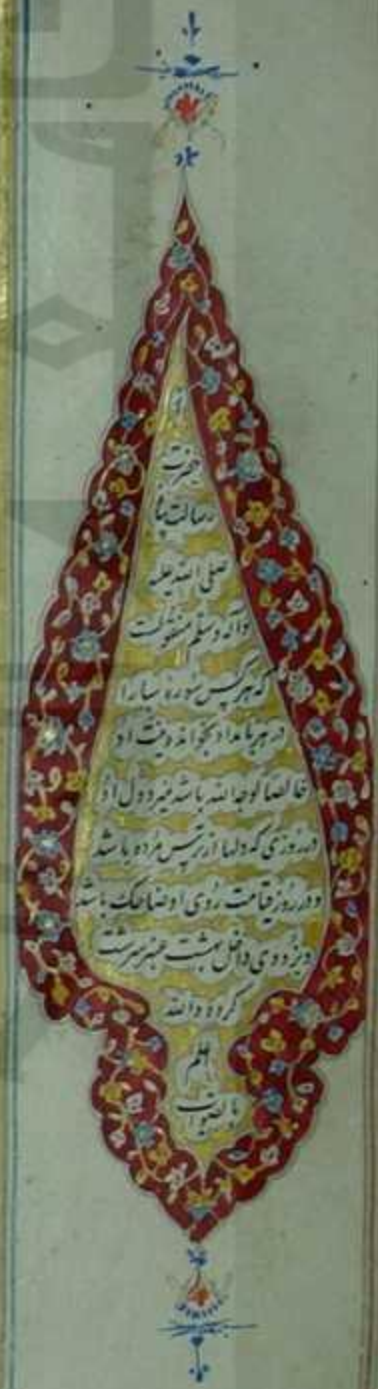 از
حضرت
رسالت پنا
صلی الله علیه
وآله وسلم منقولست
که هرکس سوره سبا را
در هر بامداد بخواند و نیت او
خالصا لوجه الله باشد نمیرد دل او
در روزی که دلها از ترس مرده باشد
و در روز قیامت روی او ضاحک باشد
و بزودی داخل بهشت عنبر سرشت
کرده والله
اعلم
بالصواب